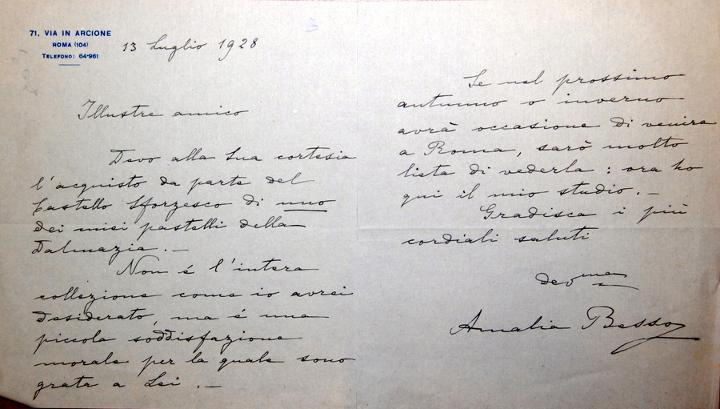 71, VIA IN ARCIONE
ROMA (104)
TELEFONO: 64-961
13 Luglio 1928
Illustre amico
Devo alla Sua cortesia
l'acquisto da parte del
Castello Sforzesco di uno
dei miei pastelli della
Dalmazia. —
Non é l'intera
collezione come io avrei
desiderato, ma é una
piccola soddisfazione
morale per la quale sono
grata a Lei. —
Se nel prossimo
autunno o inverno
avrà occasione di venire
a Roma, sarò molto
lieta di vederla: ora ho
qui il mio studio. —
Gradisca i più
cordiali saluti
dev ma
Amalia Besso